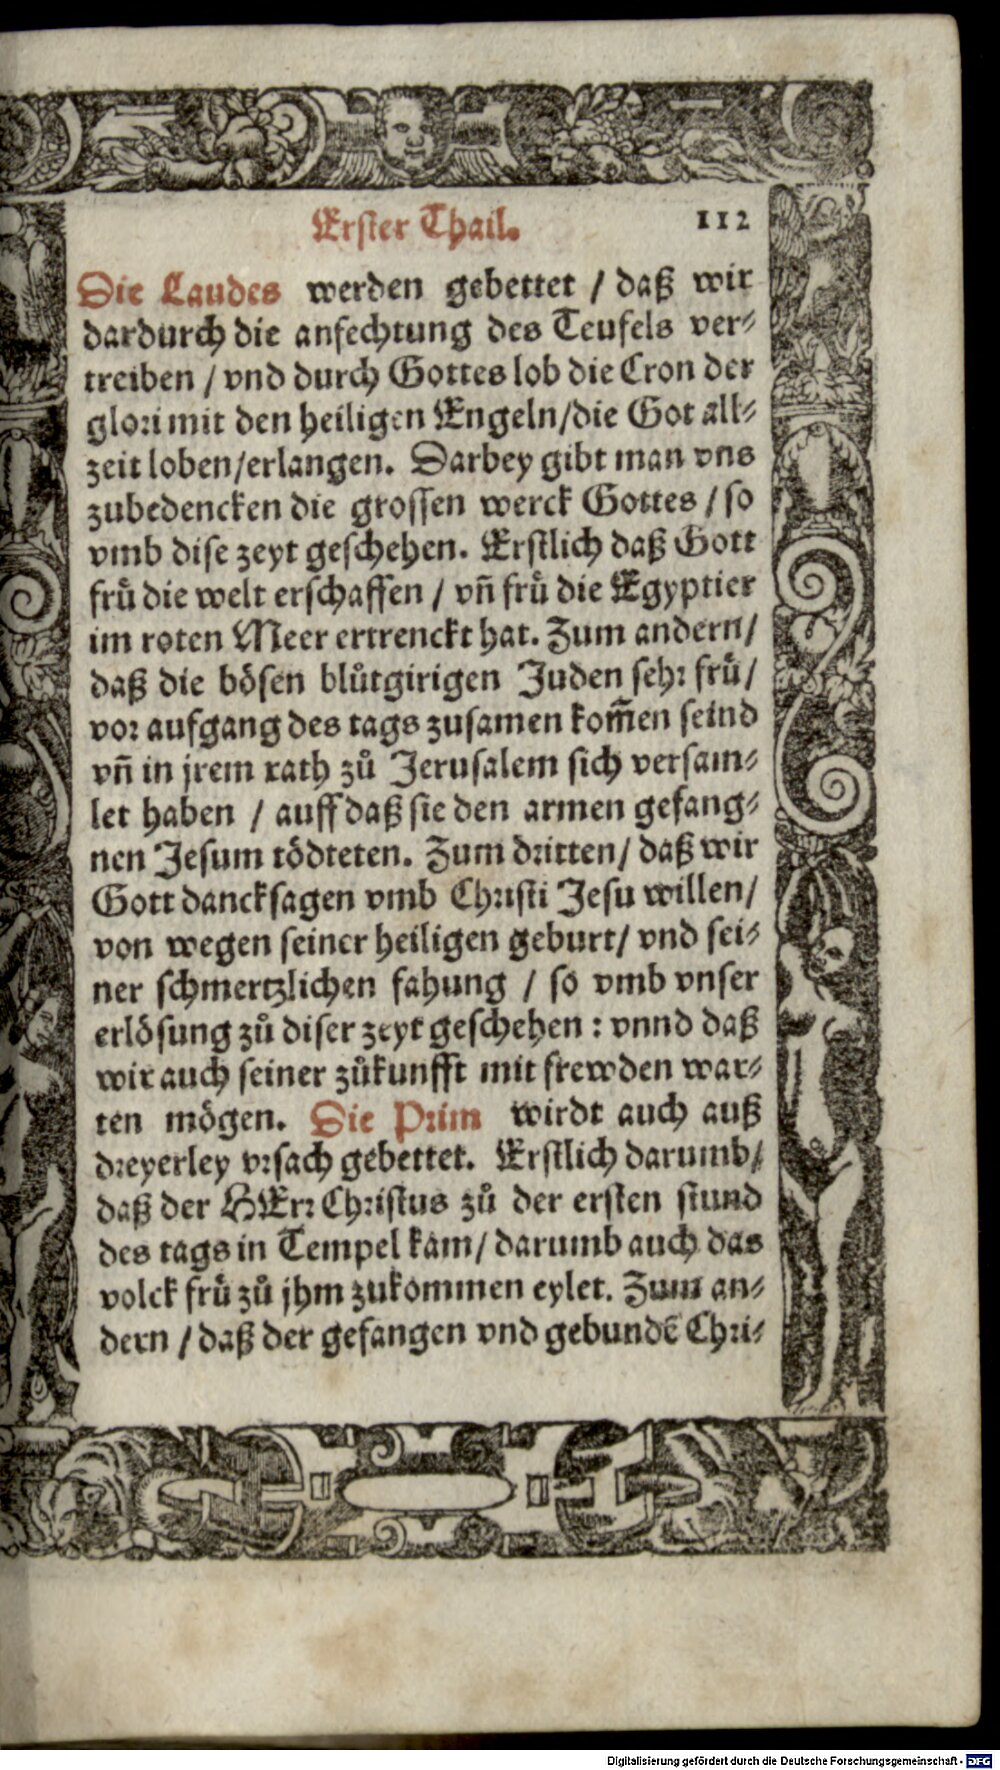 Erster Thail. 112
Die Laudes werden gebettet / daß wir
dardurch die anfechtung des Teufels ver⸗
treiben / vnd durch Gottes lob die Cron der
glori mit den heiligen Engeln/die Got all⸗
zeit loben/erlangen. Darbey gibt man vns
zubedencken die grossen werck Gottes / so
vmb dise zeyt geschehen. Erstlich daß Gott
frů die welt erschaffen / vñ frů die Egyptier
im roten Meer ertrenckt hat. Zum andern/
daß die bösen blůtgirigen Juden sehr frů/
vor aufgang des tags zusamen kom̃en seind
vñ in jrem rath zů Jerusalem sich versam⸗
let haben / auff daß sie den armen gefang⸗
nen Jesum tödteten. Zum dritten/ daß wir
Gott dancksagen vmb Christi Jesu willen/
von wegen seiner heiligen geburt/ vnd sei⸗
ner schmertzlichen fahung / so vmb vnser
erlösung zů diser zeyt geschehen : vnnd daß
wir auch seiner zůkunfft mit frewden war⸗
ten mögen. Die Prim wirdt auch auß
dreyerley vrsach gebettet. Erstlich darumb/
daß der HErr Christus zů der ersten stund
des tags in Tempel kam/ darumb auch das
volck frů zů jhm zukommen eylet. Zum an⸗
dern / daß der gefangen vnd gebundẽ Chri⸗
Digitalisierung gefördert durch die Deutsche Forschungsgemeinschaft - DFG